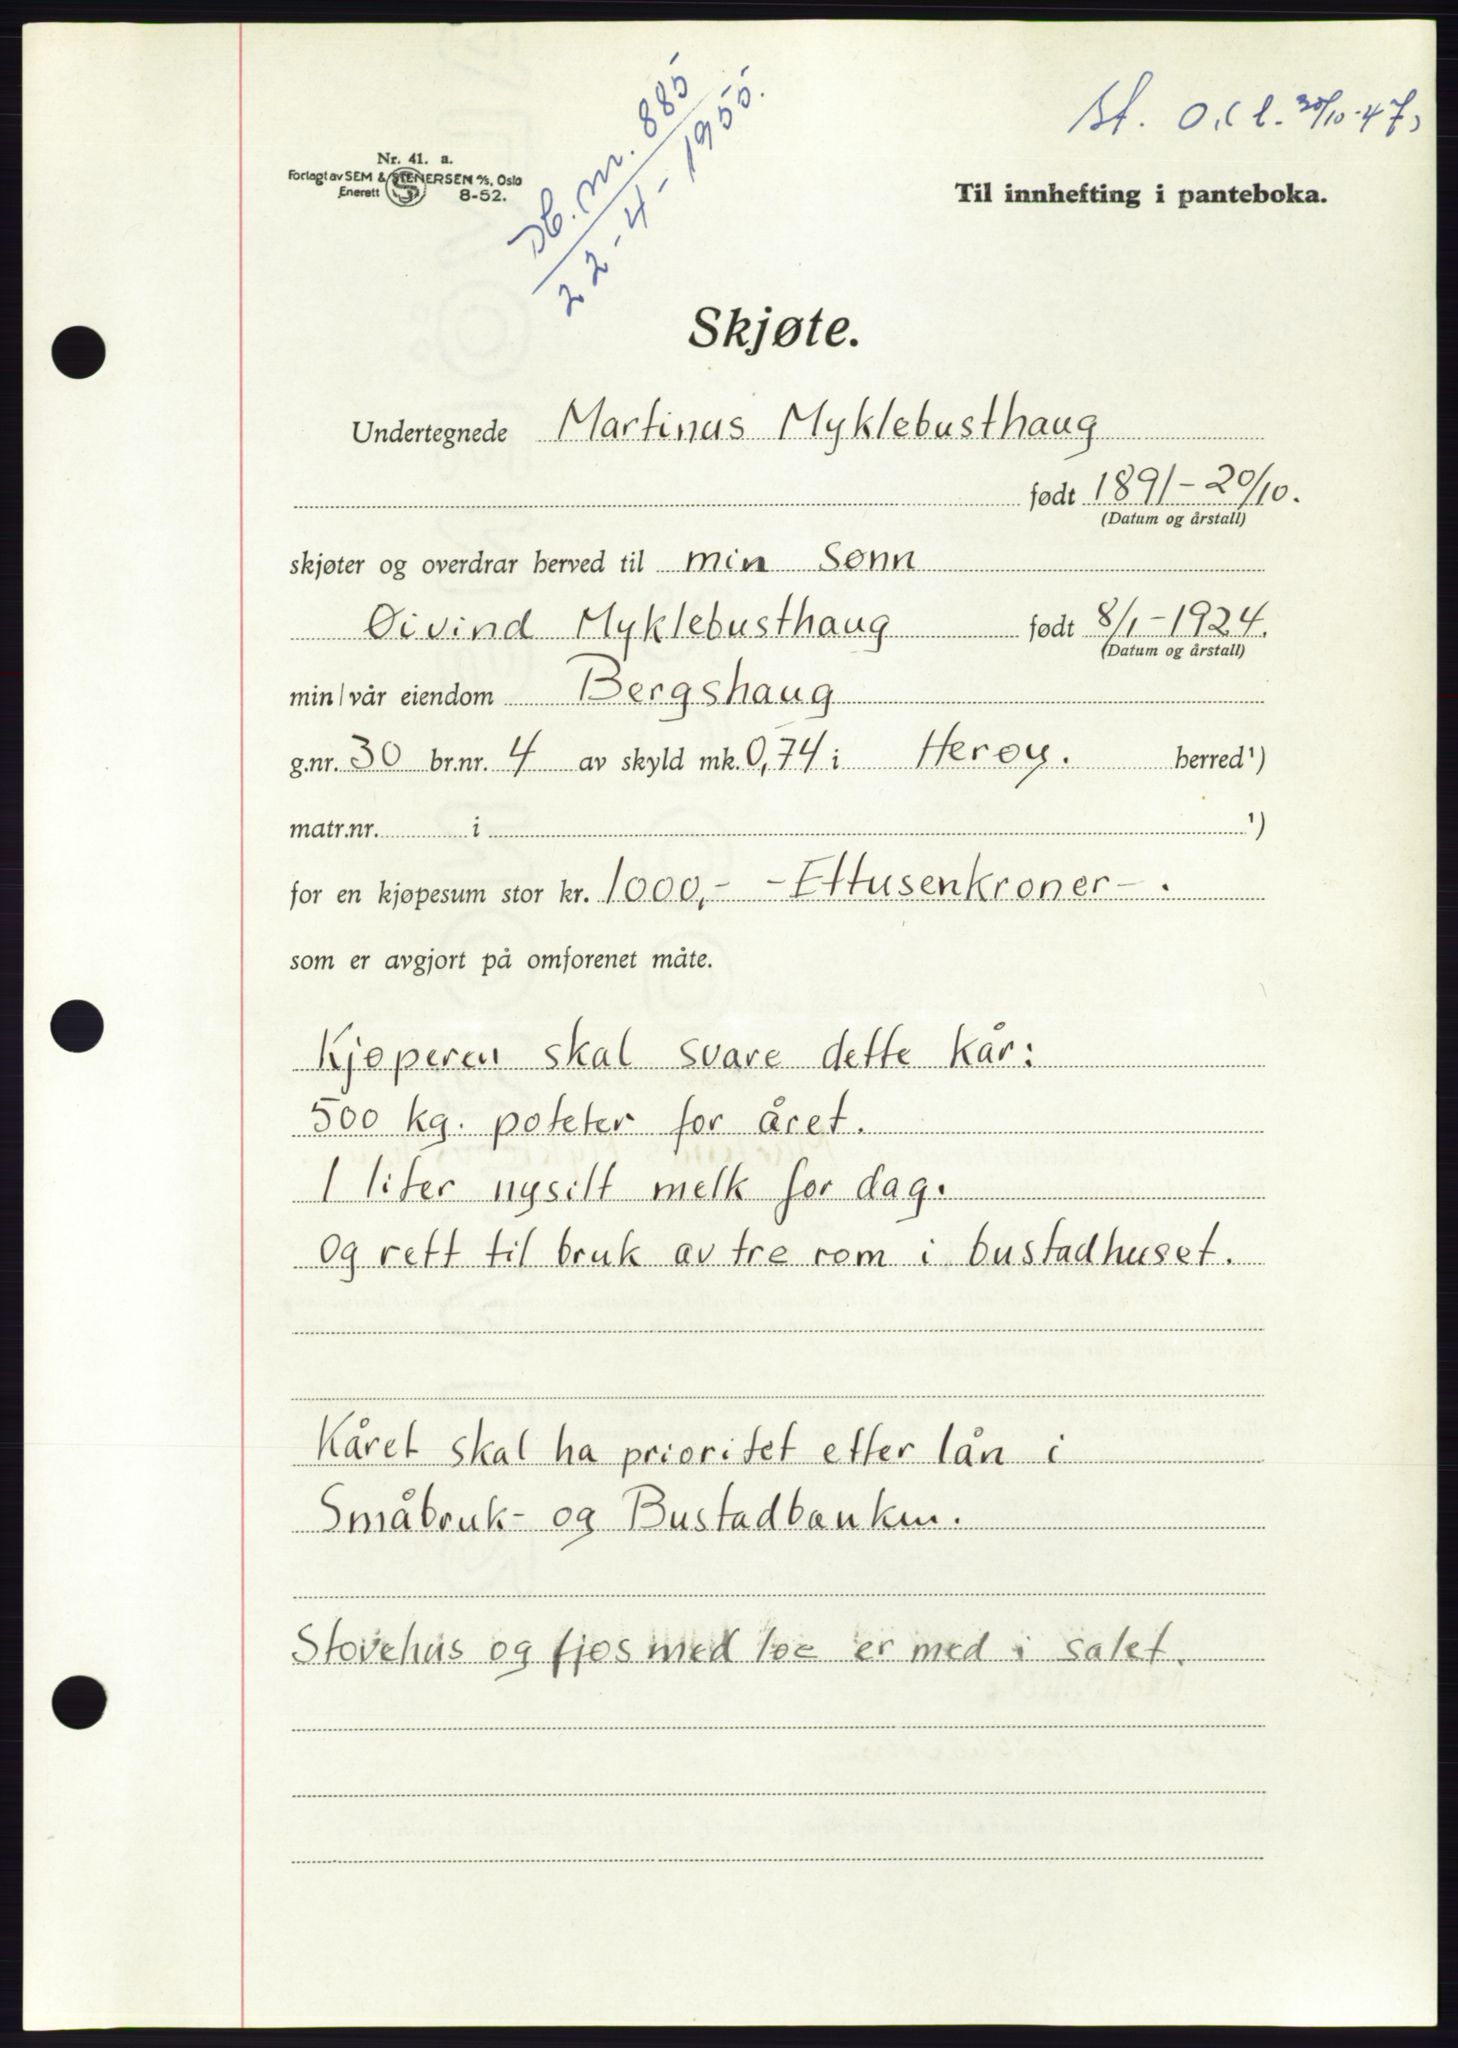 Nr. 41. a.
Forlagt av SEM & STENERSEN A/S, Oslo
Enerett 8-52.
Db. nr. 885
22-4-1955.
30/10-47,
Til innhefting i panteboka.
Skjøte.
Undertegnede Martinus Myklebusthaug
født 1891-20/10.
(Datum og årstall)
skjøter og overdrar herved til min sønn
Øivind Myklebusthaug født 8/1-1924.
(Datum og årstall)
min/vår eiendom Bergshaug
g.nr. 30 br.nr. 4 av skyld mk. 0,74 i Herøy. herred ¹)
matr.nr. i ¹)
for en kjøpesum stor kr. 1000,- -Ettusenkroner-.
som er avgjort på omforenet måte.
Kjøperen skal svare dette kår:
500 kg. poteter for året.
1 liter nysilt melk for dag.
Og rett til bruk av tre rom i bustadhuset.
Kåret skal ha prioritet etter lån i
Småbruk- og Bustadbanken.
Stovehus og fjøs med løe er med i salet.